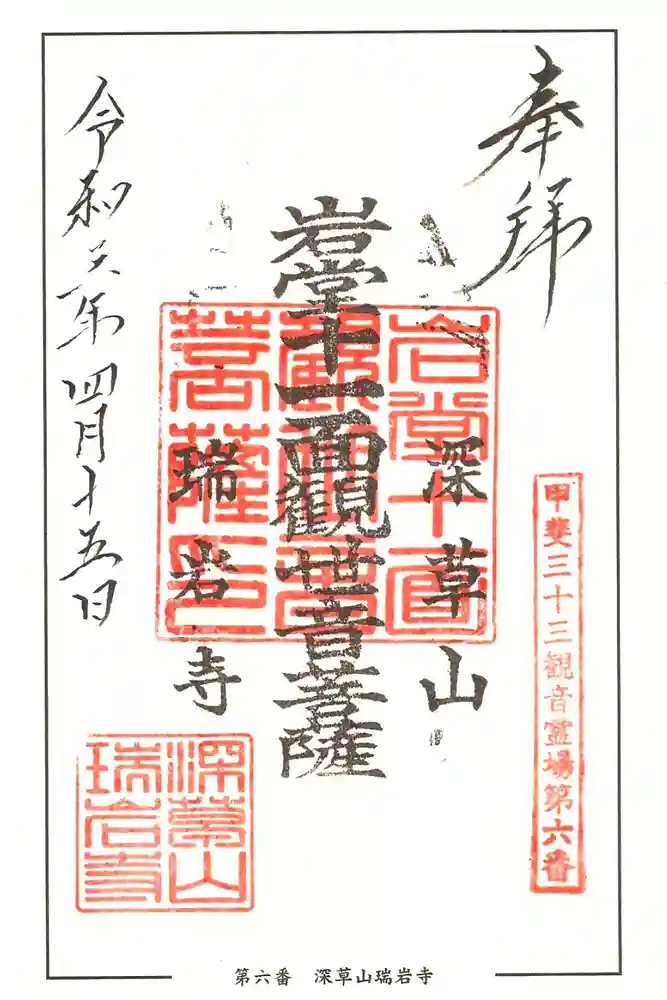 奉拝
深草山
岩堂十一面觀世音菩薩
瑞岩寺
令和六年四月十五日
甲斐三十三観音霊場第六番
岩堂十一面
觀世音
菩薩印
深草山
瑞岩寺
第六番　深草山瑞岩寺